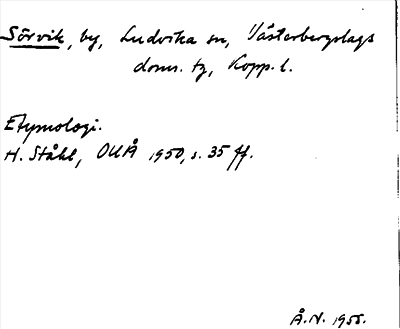 Sörvik, by, Ludvika sn, Västerbergslags
doms. tg, Kopp. l.
Etymologi.
H. Ståhl, OUÅ 1950, s. 35 ff.
Å. N. 1955.